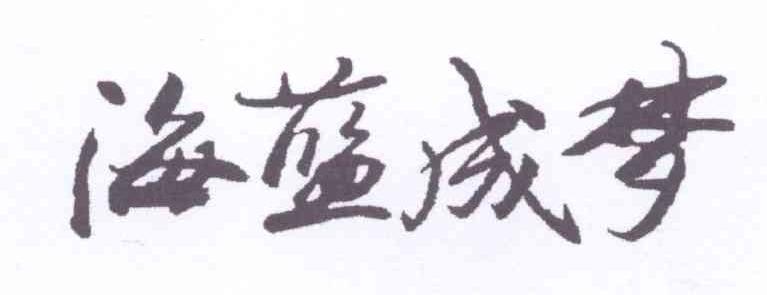 海蓝成梦